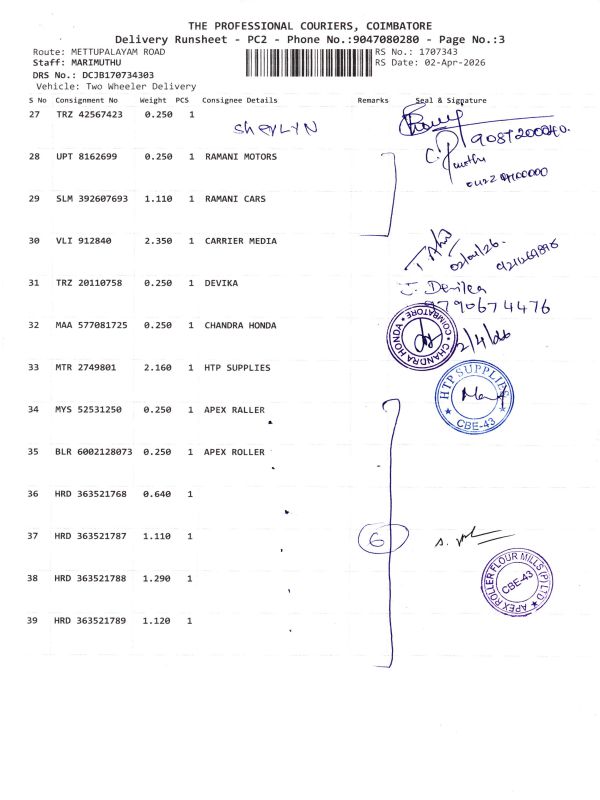 THE PROFESSIONAL COURIERS, COIMBATORE
Delivery Runsheet - PC2 - Phone No.:9047080280 - Page No.:3
Route: METTUPALAYAM ROAD RS No.: 1707343
Staff: MARIMUTHU RS Date: 02-Apr-2026
DRS No.: DCJB170734303
Vehicle: Two Wheeler Delivery
S No Consignment No Weight PCS Consignee Details Remarks Seal & Signature
27 TRZ 42567423 0.250 1 SHEYLYN
28 UPT 8162699 0.250 1 RAMANI MOTORS
29 SLM 392607693 1.110 1 RAMANI CARS
30 VLI 912840 2.350 1 CARRIER MEDIA 02/04/26.
31 TRZ 20110758 0.250 1 DEVIKA J. Devika
9790674476
32 MAA 577081725 0.250 1 CHANDRA HONDA CHANDRA HONDA COIMBATORE 2/4/26
33 MTR 2749801 2.160 1 HTP SUPPLIES HTP SUPPLIES CBE-43
34 MYS 52531250 0.250 1 APEX RALLER
35 BLR 6002128073 0.250 1 APEX ROLLER
36 HRD 363521768 0.640 1
37 HRD 363521787 1.110 1 6
38 HRD 363521788 1.290 1 APEX ROLLER FLOUR MILLS (P) LTD CBE-43
39 HRD 363521789 1.120 1